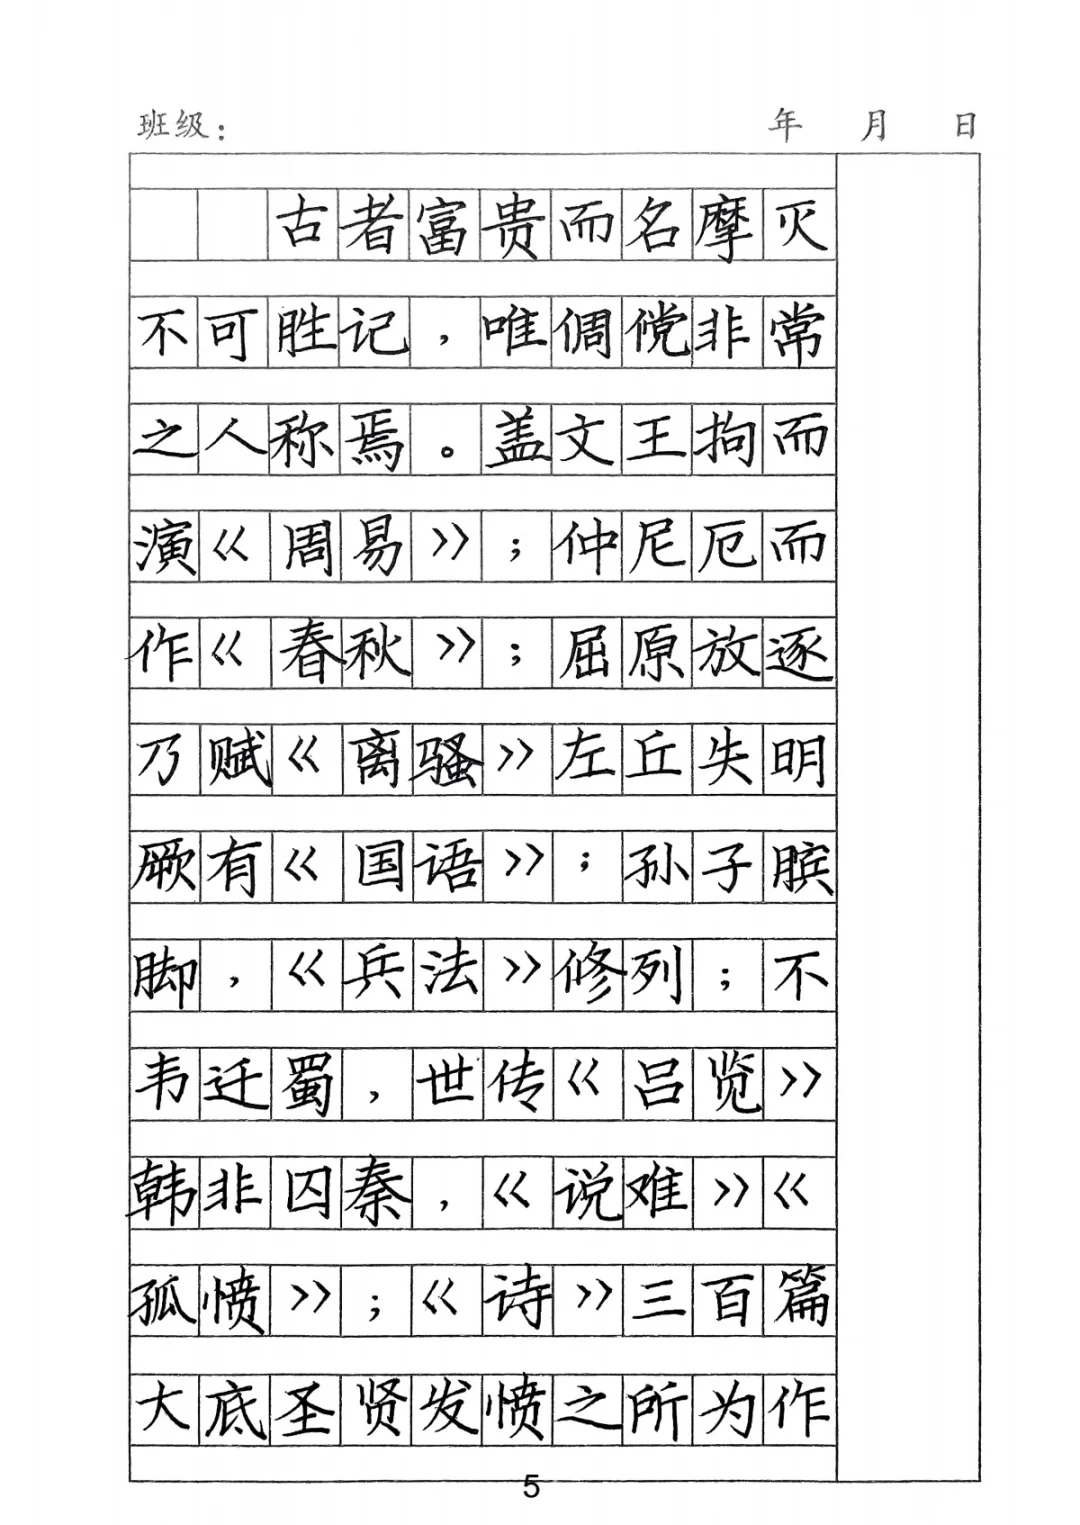 班级： 年 月 日
古者富贵而名摩灭
不可胜记，唯倜傥非常
之人称焉。盖文王拘而
演《周易》；仲尼厄而
作《春秋》；屈原放逐
乃赋《离骚》左丘失明
厥有《国语》；孙子膑
脚，《兵法》修列；不
韦迁蜀，世传《吕览》
韩非囚秦，《说难》《
孤愤》；《诗》三百篇
大底圣贤发愤之所为作
5